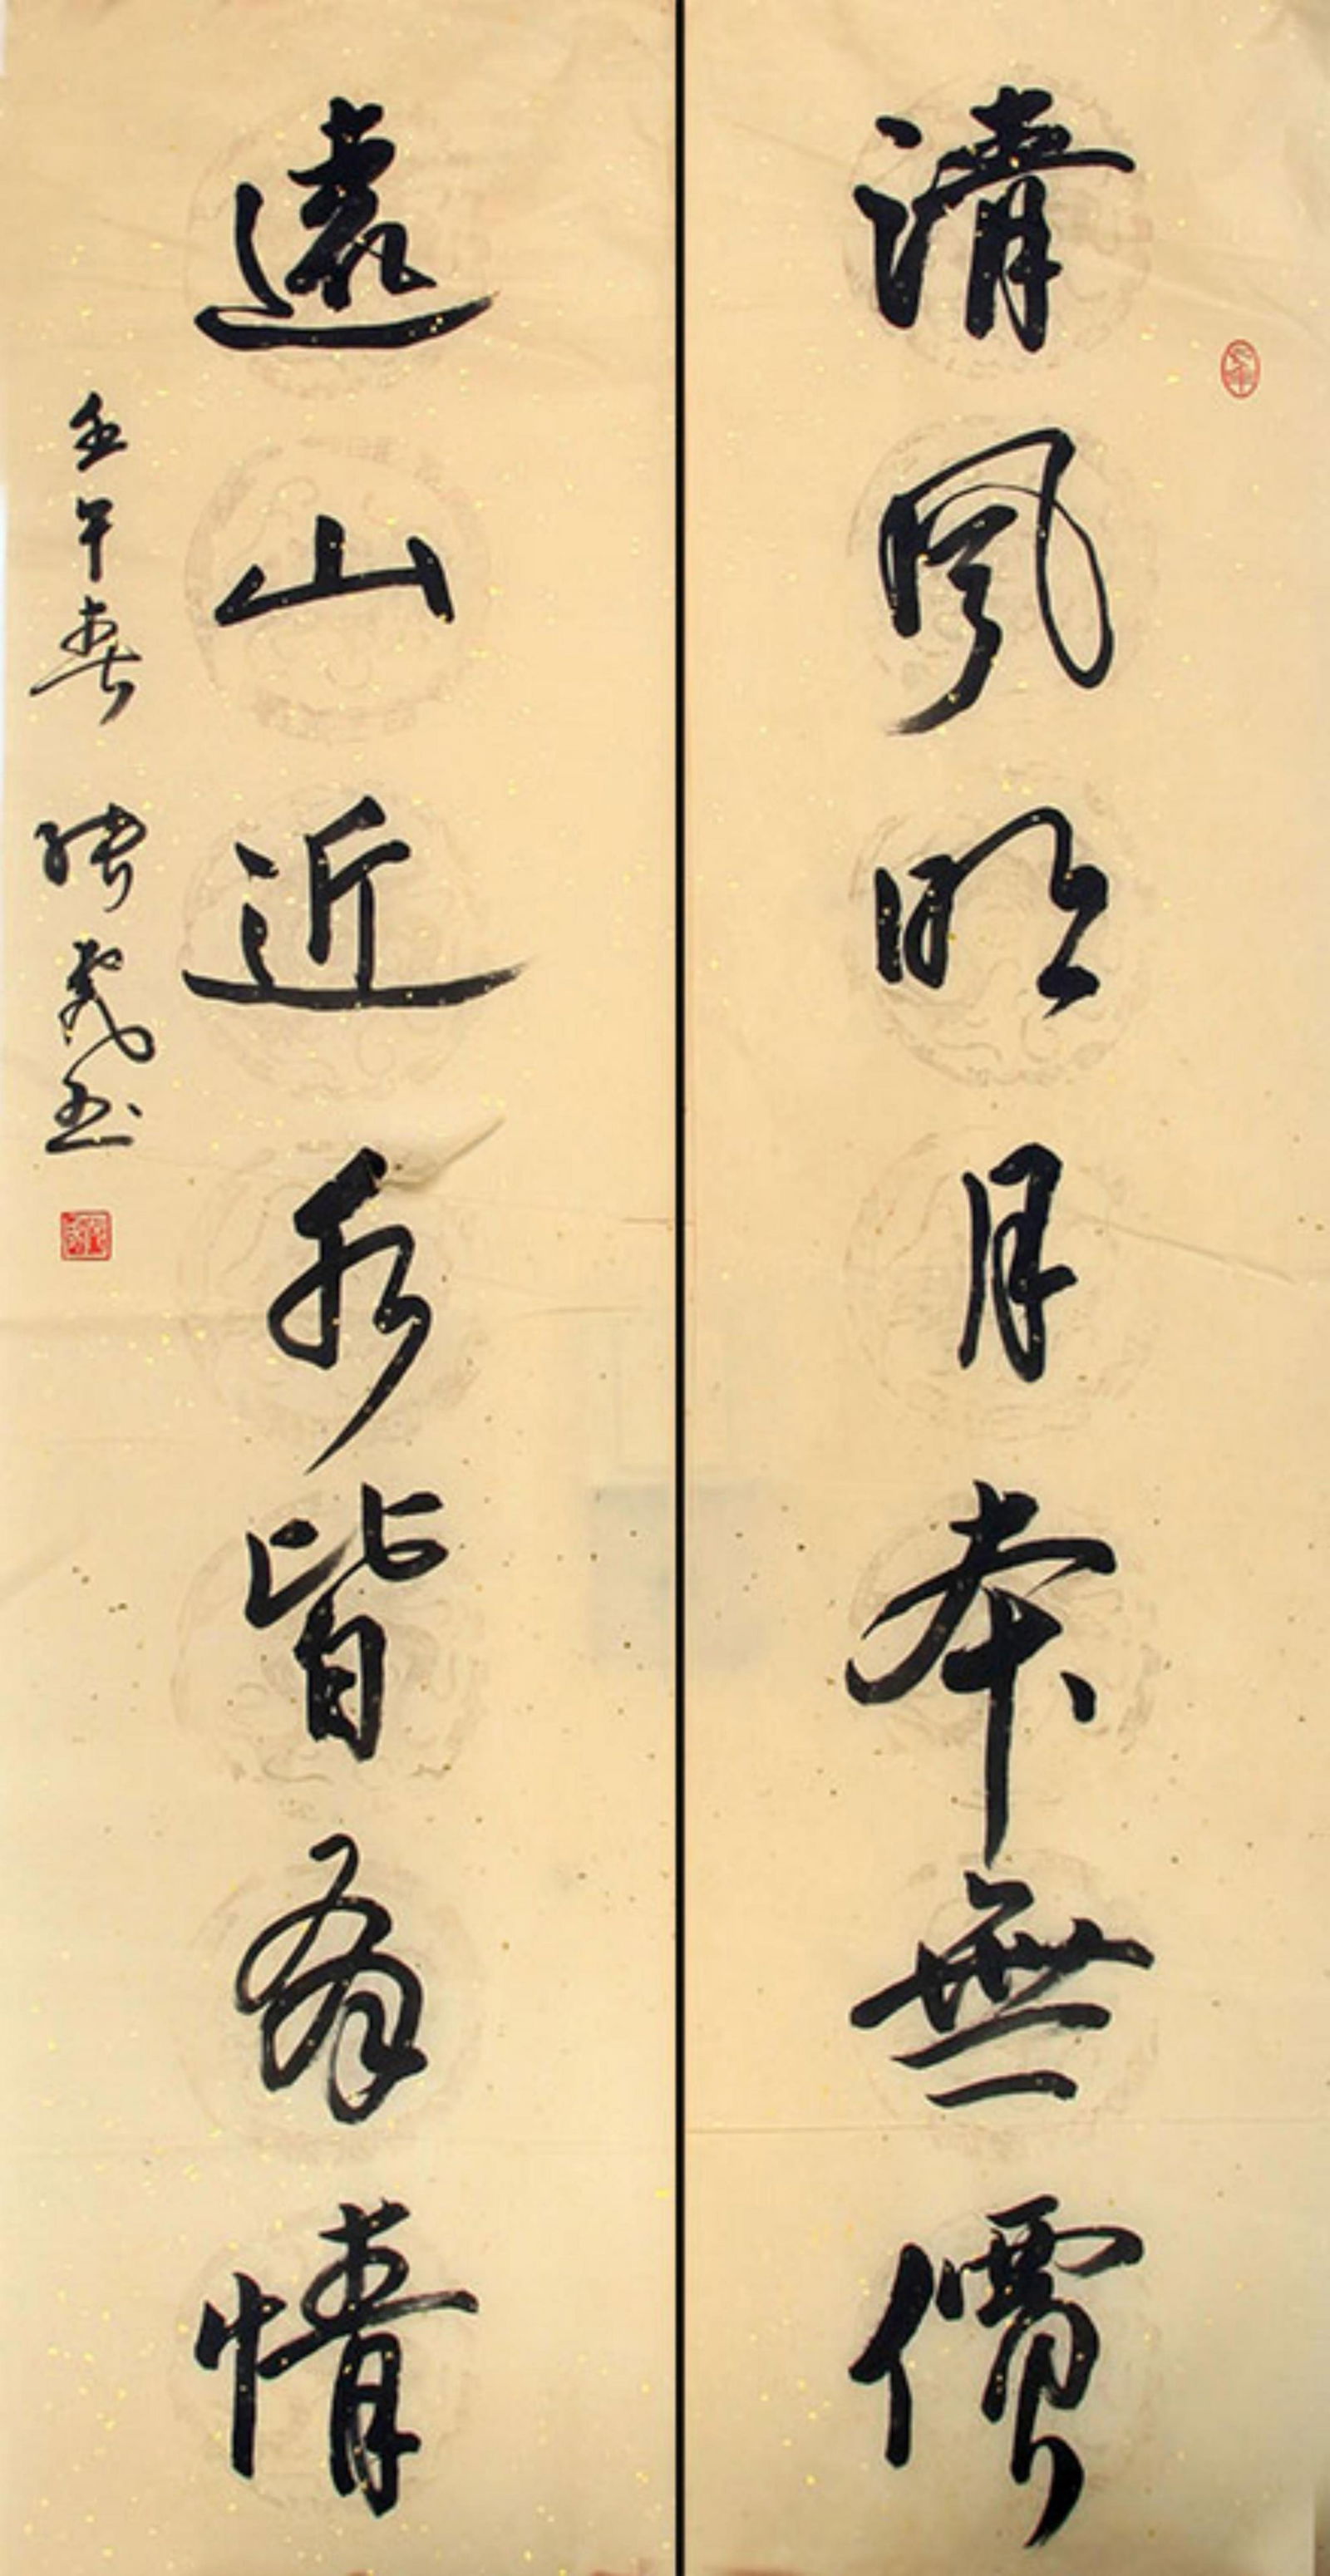 清風明月本無價
遠山近水皆有情
壬午春 張武書